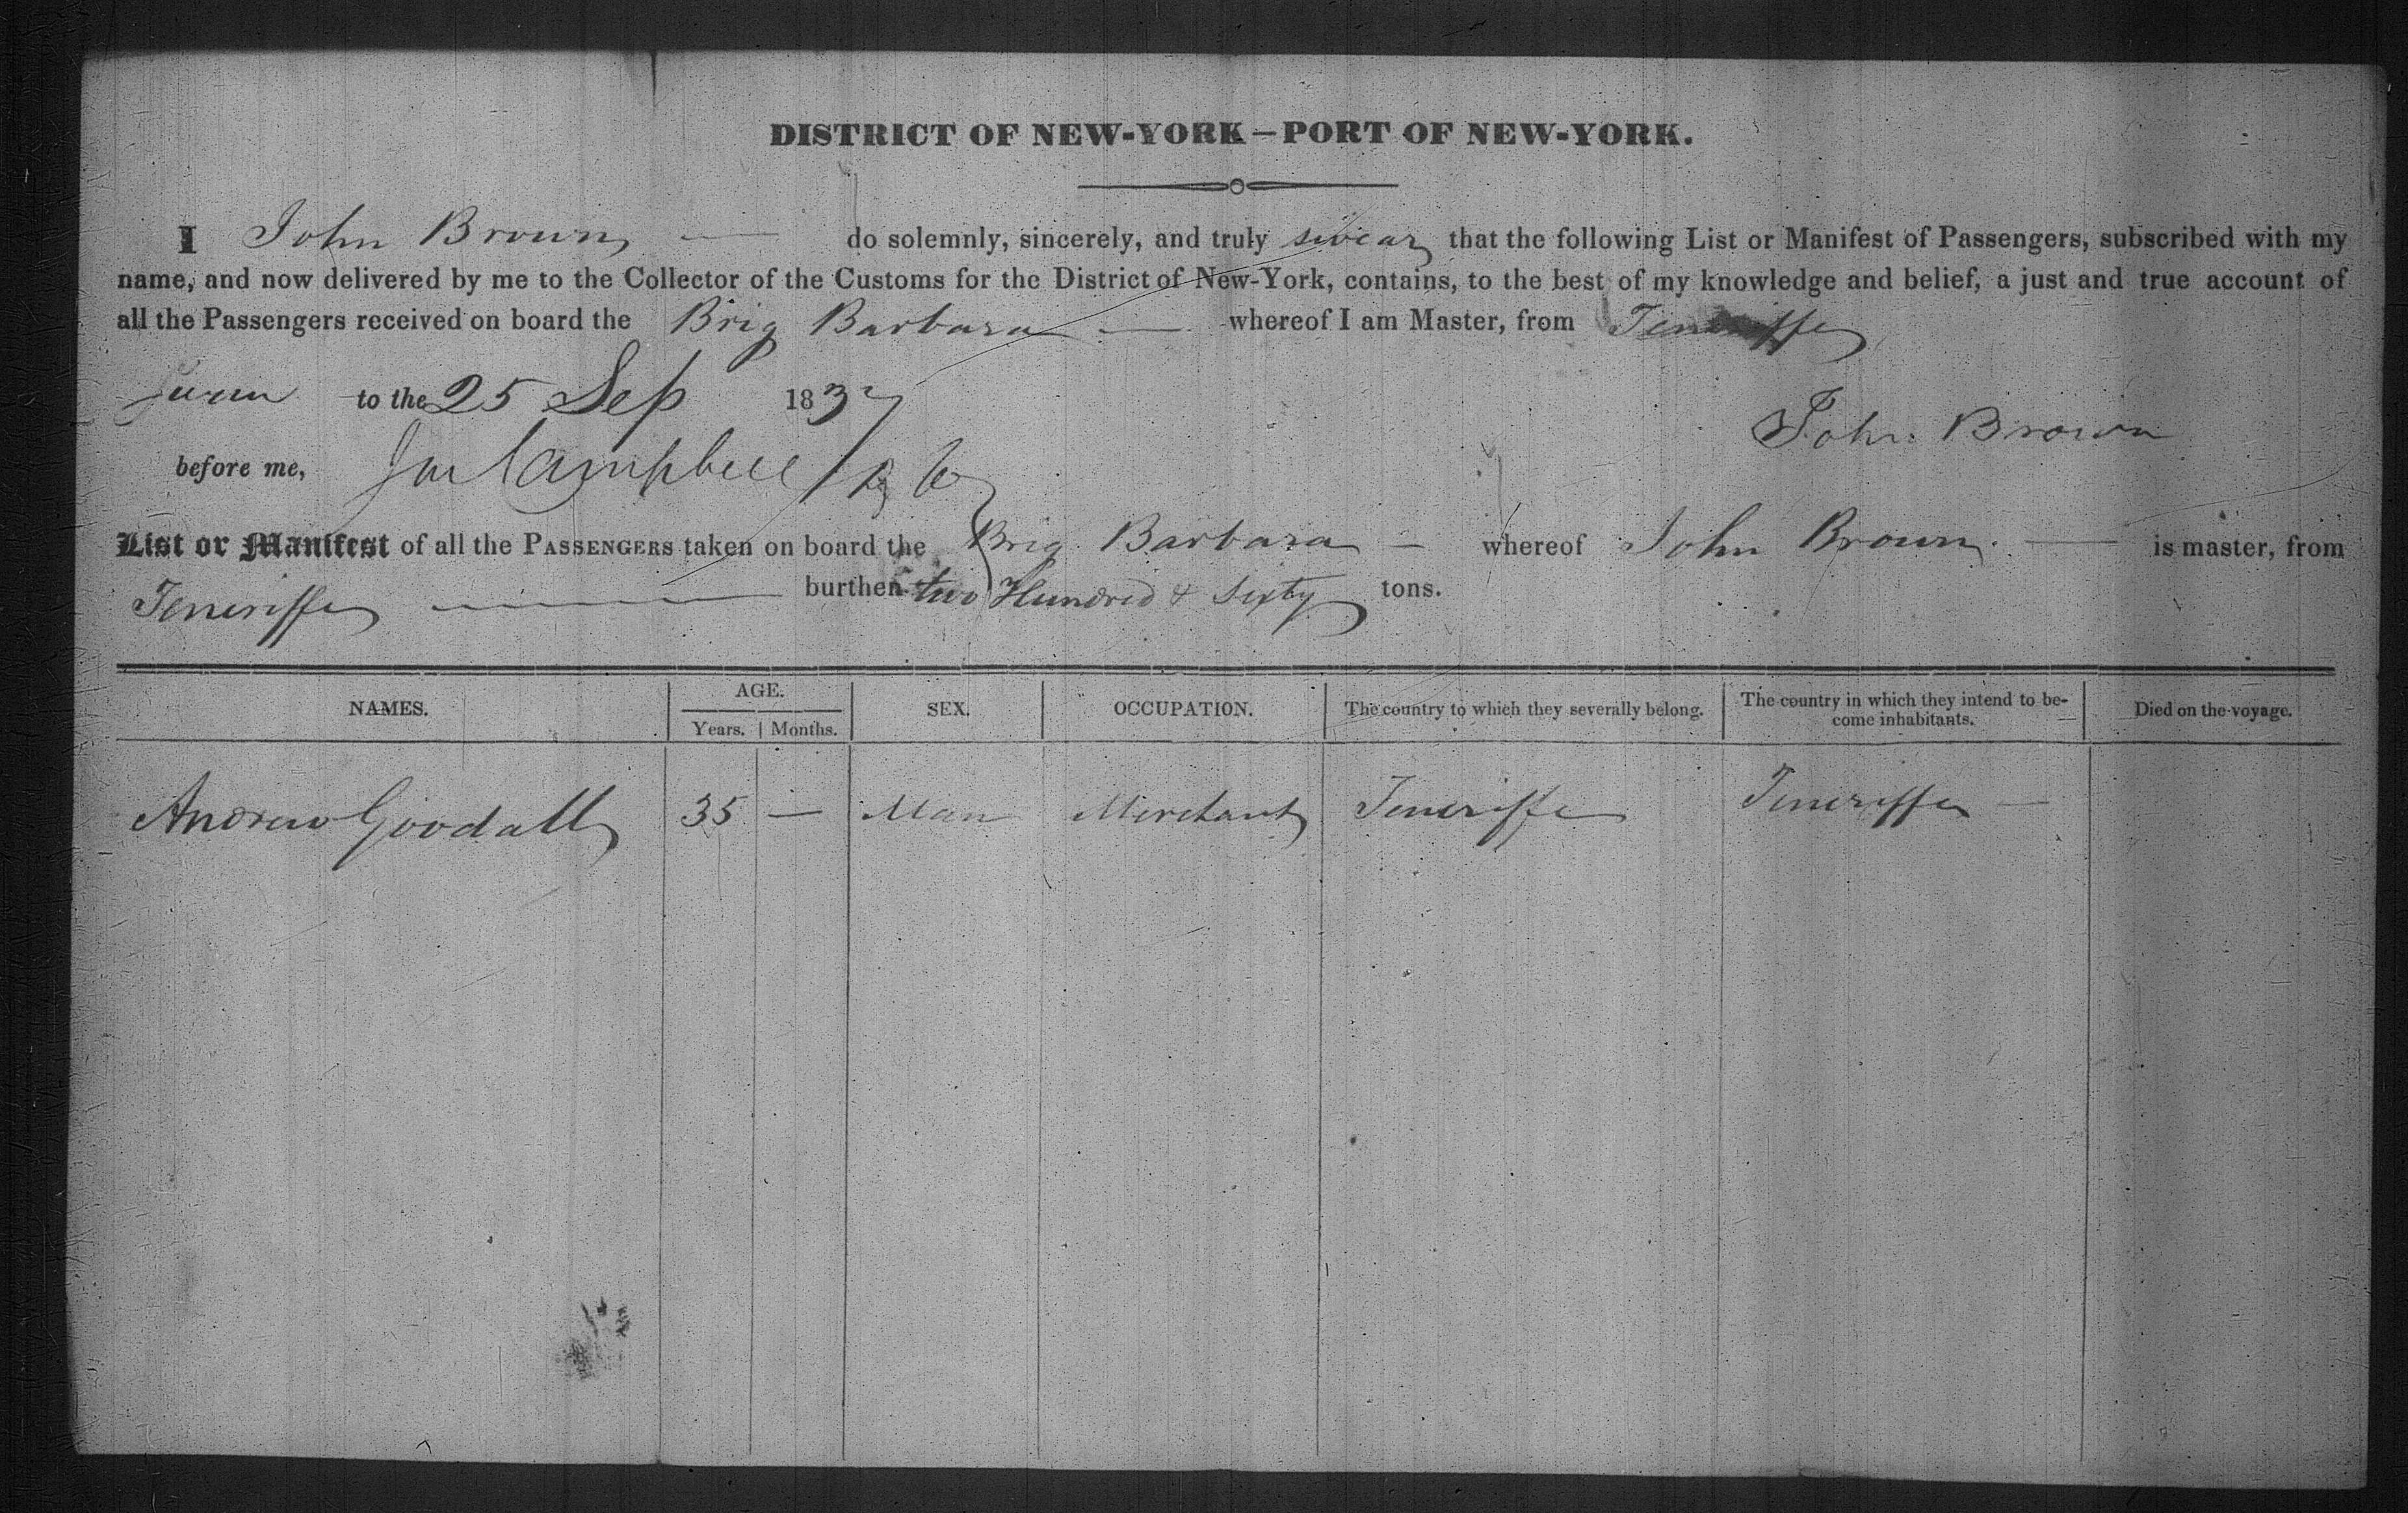 DISTRICT OF NEW-YORK—PORT OF NEW-YORK.
I John Brown — do solemnly, sincerely, and truly swear that the following List or Manifest of Passengers, subscribed with my
name, and now delivered by me to the Collector of the Customs for the District of New-York, contains, to the best of my knowledge and belief, a just and true account of
all the Passengers received on board the Brig Barbara — whereof I am Master, from Teneriffe
to the 25 Sep 1837
John Brown
before me, Campbell
List or Manifest of all the PASSENGERS taken on board the Brig Barbara — whereof John Brown — is master, from
Teneriffe — burthen two Hundred & Sixty tons.
NAMES. AGE. SEX. OCCUPATION. The country to which they severally belong. The country in which they intend to be-
come inhabitants. Died on the voyage.
Years. Months.
Andrew Goodall 35 — Man Merchant Teneriffe Teneriffe —